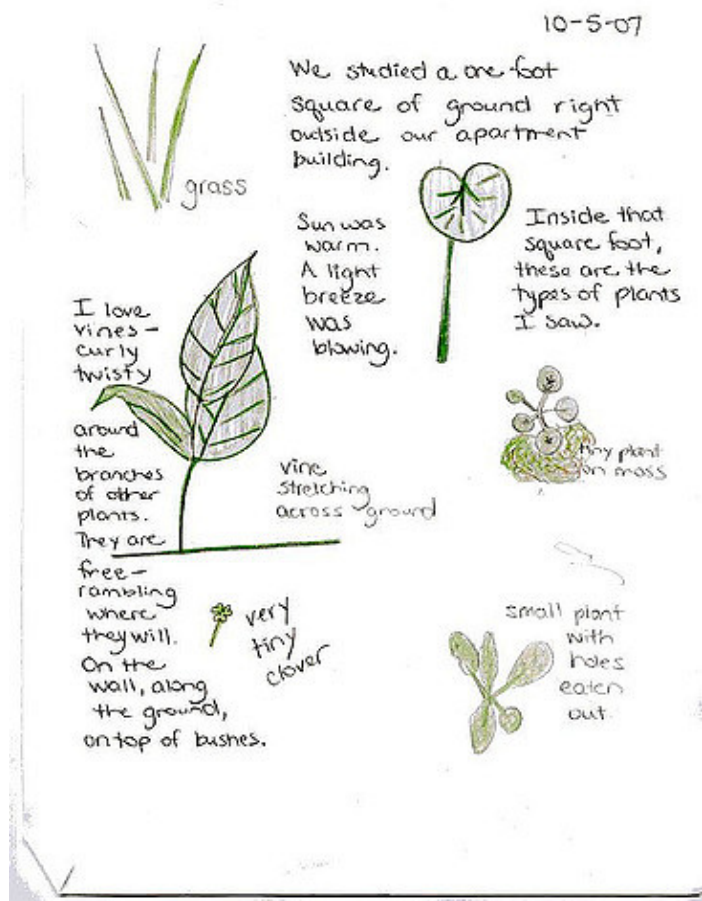 10-5-07
We studied a one-foot
square of ground right
outside our apartment
building.
grass
Sun was
warm.
A light
breeze
was
blowing.
Inside that
square foot,
these are the
types of plants
I saw.
I love
vines-
curly
twisty
around
the
branches
of other
plants.
They are
free-
rambling
where
they will.
On the
wall, along
the ground,
on top of bushes.
vine
stretching
across ground
tiny plant
on moss
very
tiny
clover
small plant
with
holes
eaten
out.